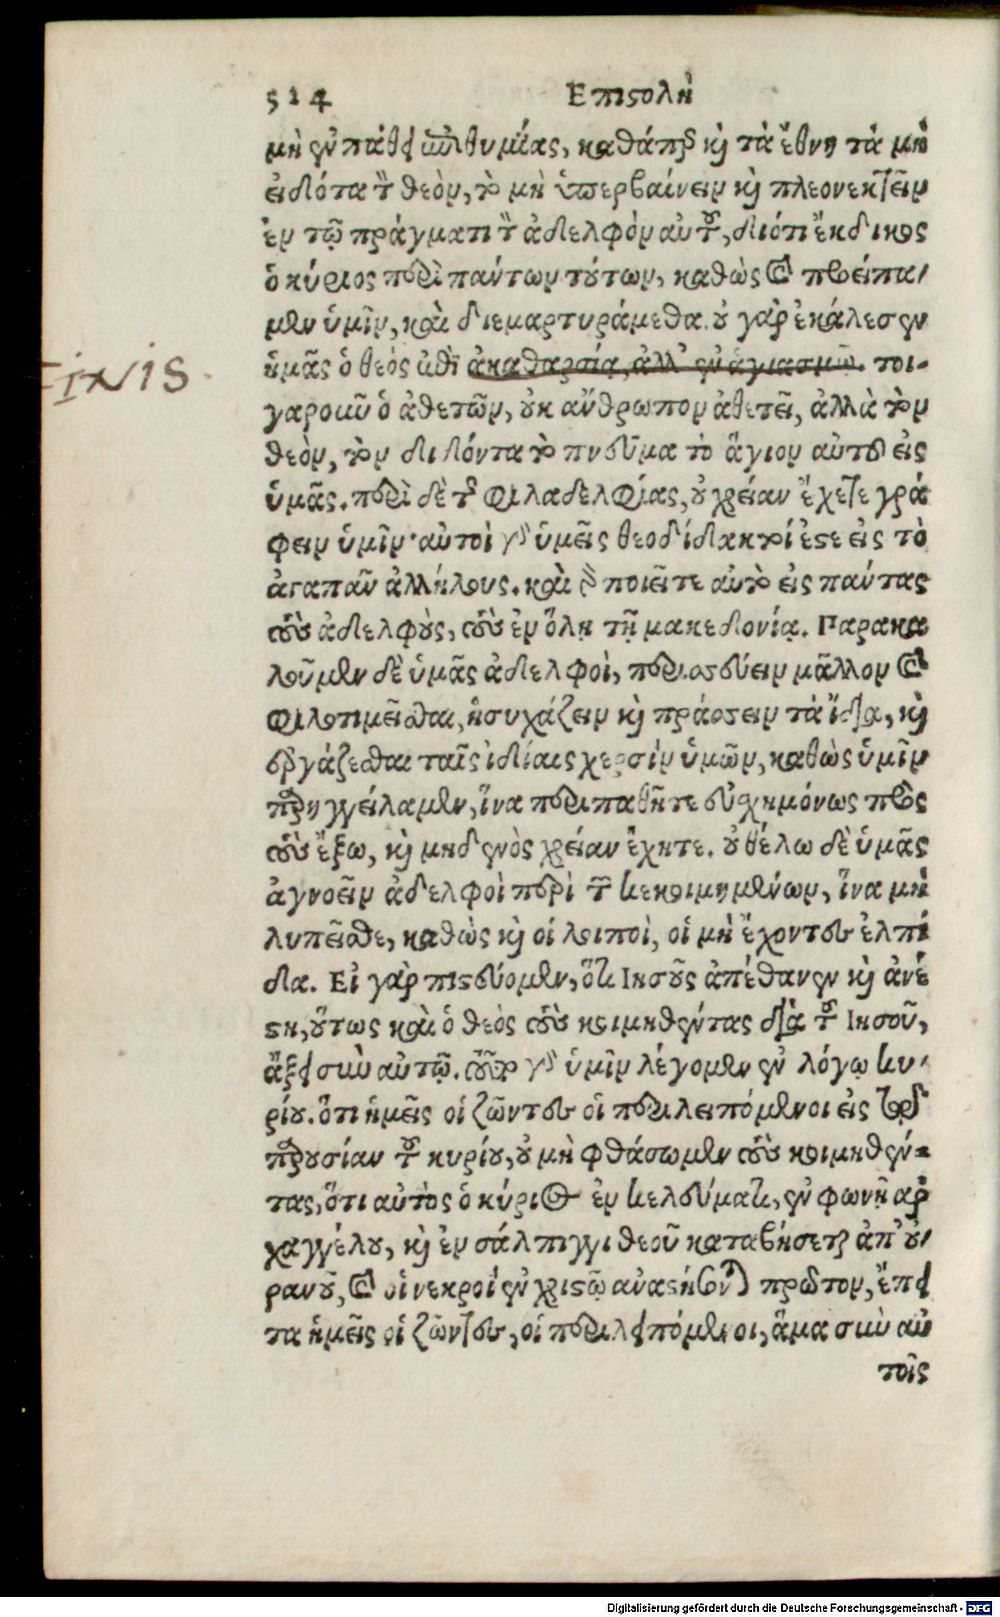 524 Επιστολὴ
μὴ ἐν πάθει ἐπιθυμίας, καθάπερ καὶ τὰ ἔθνη τὰ μὴ
εἰδότα τὸν θεὸν, τὸ μὴ ὑπερβαίνειν καὶ πλεονεκτεῖν
ἐν τῷ πράγματι τὸν ἀδελφὸν αὐτοῦ, διότι ἔκδικος
ὁ κύριος περὶ πάντων τούτων, καθὼς καὶ προείπα-
μεν ὑμῖν, καὶ διεμαρτυράμεθα. οὐ γὰρ ἐκάλεσεν
ἡμᾶς ὁ θεὸς ἐπὶ ἀκαθαρσίᾳ, ἀλλ' ἐν ἁγιασμῷ. τοι-
FINIS
γαροῦν ὁ ἀθετῶν, οὐκ ἄνθρωπον ἀθετεῖ, ἀλλὰ τὸν
θεὸν, τὸν διδόντα τὸ πνεῦμα τὸ ἅγιον αὐτοῦ εἰς
ὑμᾶς. περὶ δὲ τῆς φιλαδελφίας, οὐ χρείαν ἔχετε γρά
φειν ὑμῖν· αὐτοὶ γὰρ ὑμεῖς θεοδίδακτοί ἐστε εἰς τὸ
ἀγαπᾶν ἀλλήλους. καὶ γὰρ ποιεῖτε αὐτὸ εἰς πάντας
τοὺς ἀδελφοὺς, τοὺς ἐν ὅλῃ τῇ μακεδονίᾳ. Παρακα
λοῦμεν δὲ ὑμᾶς ἀδελφοὶ, περισσεύειν μᾶλλον καὶ
φιλοτιμεῖσθαι, ἡσυχάζειν καὶ πράσσειν τὰ ἴδια, καὶ
ἐργάζεσθαι ταῖς ἰδίαις χερσὶν ὑμῶν, καθὼς ὑμῖν
παρηγγείλαμεν, ἵνα περιπατῆτε εὐσχημόνως πρὸς
τοὺς ἔξω, καὶ μηδενὸς χρείαν ἔχητε. οὐ θέλω δὲ ὑμᾶς
ἀγνοεῖν ἀδελφοὶ περὶ τῶν κεκοιμημένων, ἵνα μὴ
λυπεῖσθε, καθὼς καὶ οἱ λοιποὶ, οἱ μὴ ἔχοντες ἐλπί
δα. Εἰ γὰρ πιστεύομεν, ὅτι Ιησοῦς ἀπέθανεν καὶ ἀνέ
στη, οὕτως καὶ ὁ θεὸς τοὺς κοιμηθέντας διὰ τοῦ Ιησοῦ,
ἄξει σὺν αὐτῷ. τοῦτο γὰρ ὑμῖν λέγομεν ἐν λόγῳ κυ-
ρίου. ὅτι ἡμεῖς οἱ ζῶντες οἱ περιλειπόμενοι εἰς τὴν
παρουσίαν τοῦ κυρίου, οὐ μὴ φθάσωμεν τοὺς κοιμηθέν-
τας, ὅτι αὐτὸς ὁ κύριος ἐν κελεύματι, ἐν φωνῇ ἀρ
χαγγέλου, καὶ ἐν σάλπιγγι θεοῦ καταβήσεται ἀπ' οὐ-
ρανοῦ, καὶ οἱ νεκροὶ ἐν χριστῷ ἀναστήσονται πρῶτον, ἔπει
τα ἡμεῖς οἱ ζῶντες, οἱ περιλειπόμενοι, ἅμα σὺν αὐ
τοῖς
Digitalisierung gefördert durch die Deutsche Forschungsgemeinschaft - DFG